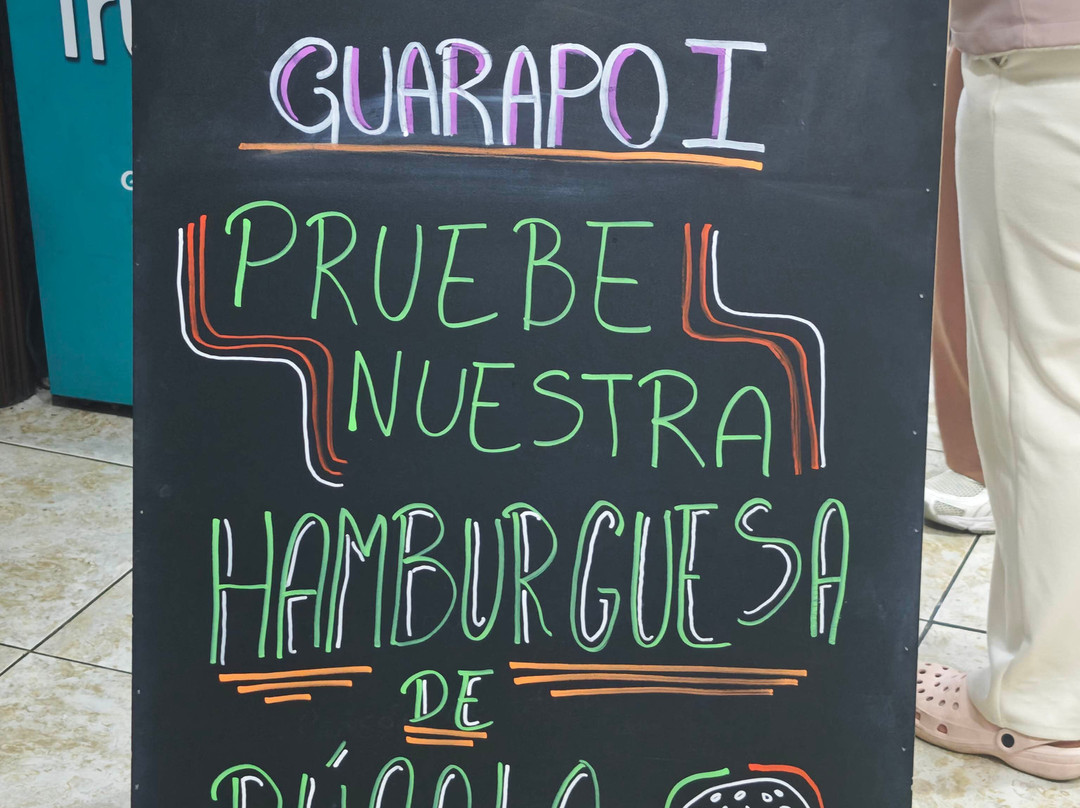 GUARAPO I
PRUEBE
NUESTRA
HAMBURGUESA
DE